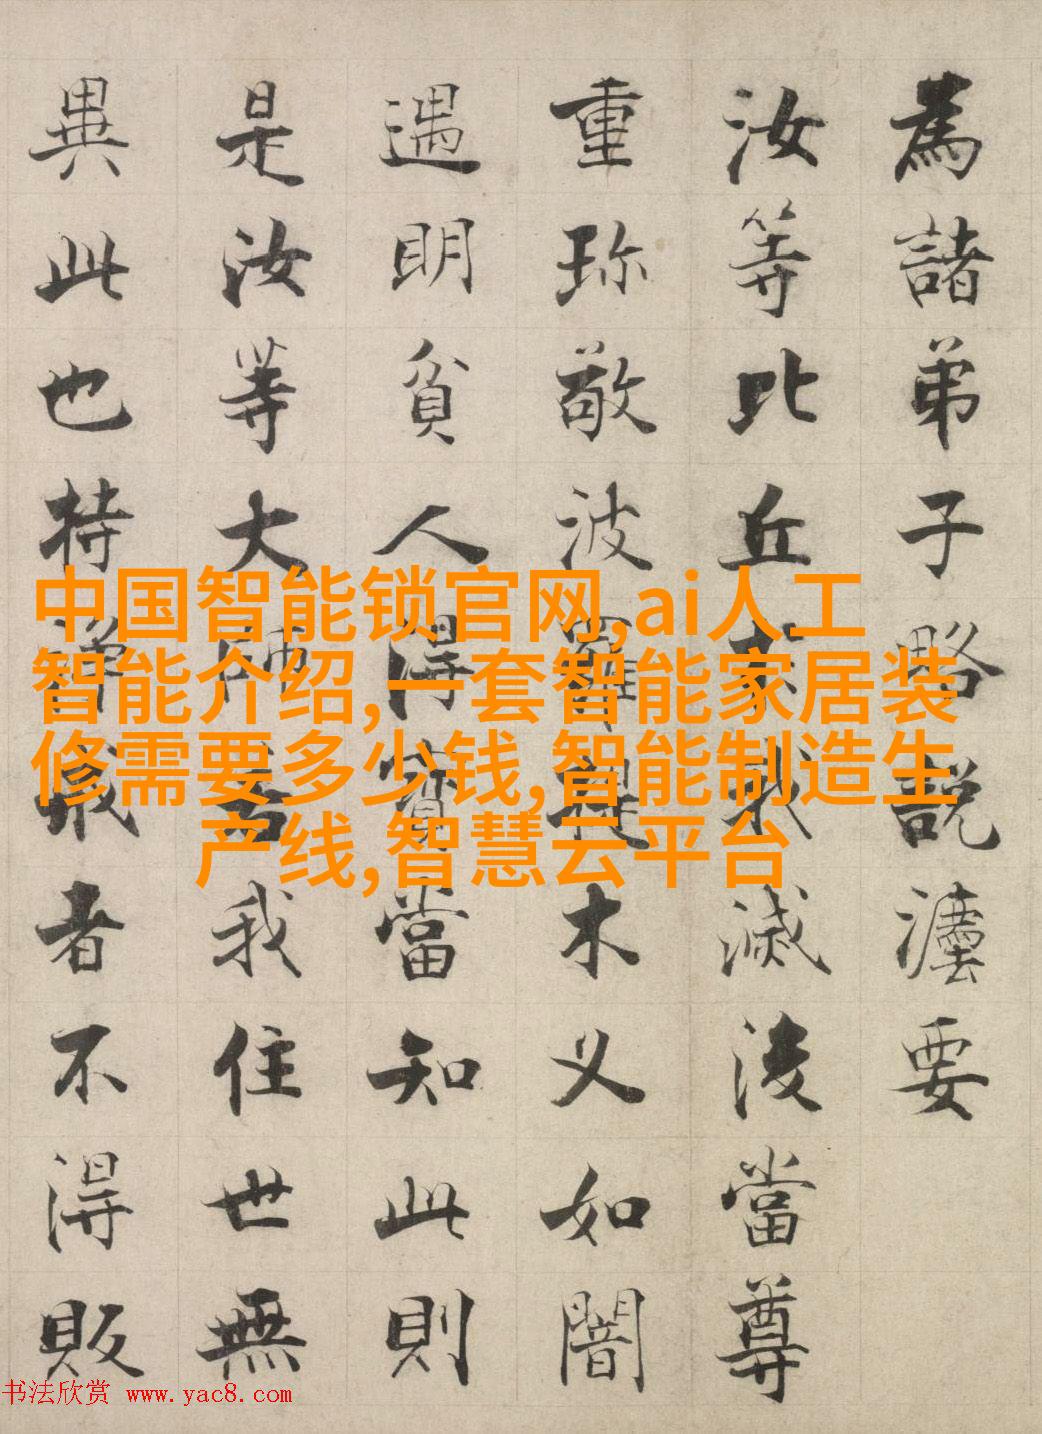 為諸弟子略說灋要
汝等比丘於我滅後當尊
重珎敬波羅提木叉如闇
遇明貧人得寶當知此則
是汝等大師若我住世無
異此也持淨戒者不得販
中国智能锁官网,ai人工
智能介绍,一套智能家居装
修需要多少钱,智能制造生
产线,智慧云平台
书法欣赏 www.yac8.com